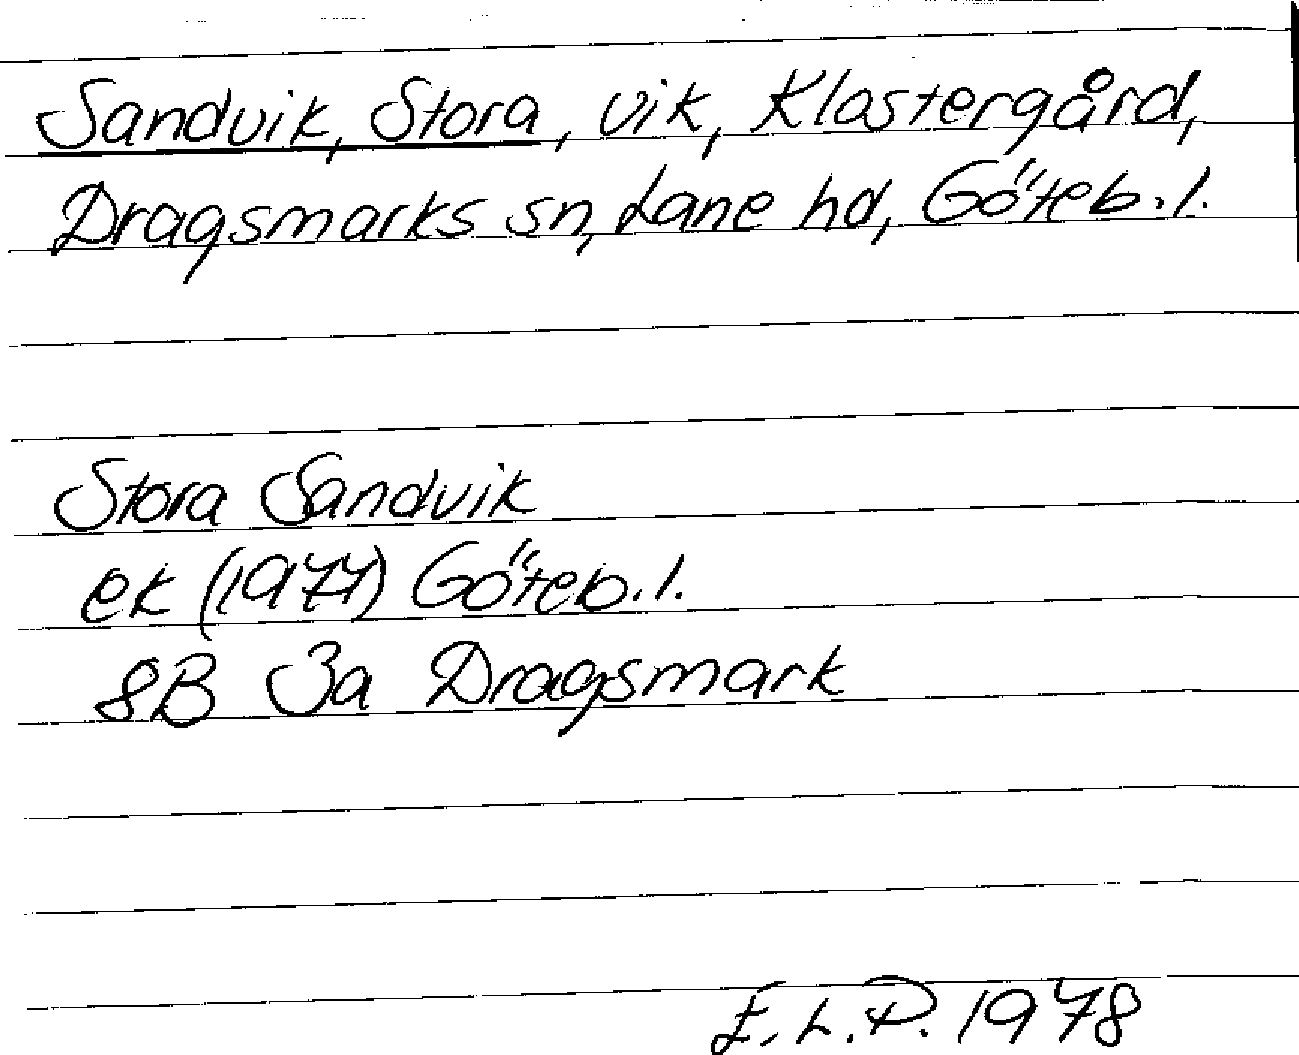 Sandvik, Stora, vik, Klostergård,
Dragsmarks sn, Lane hd, Göteb. l.
Stora Sandvik
ek (1977) Göteb. l.
8B 3a Dragsmark
E. L. P. 1978